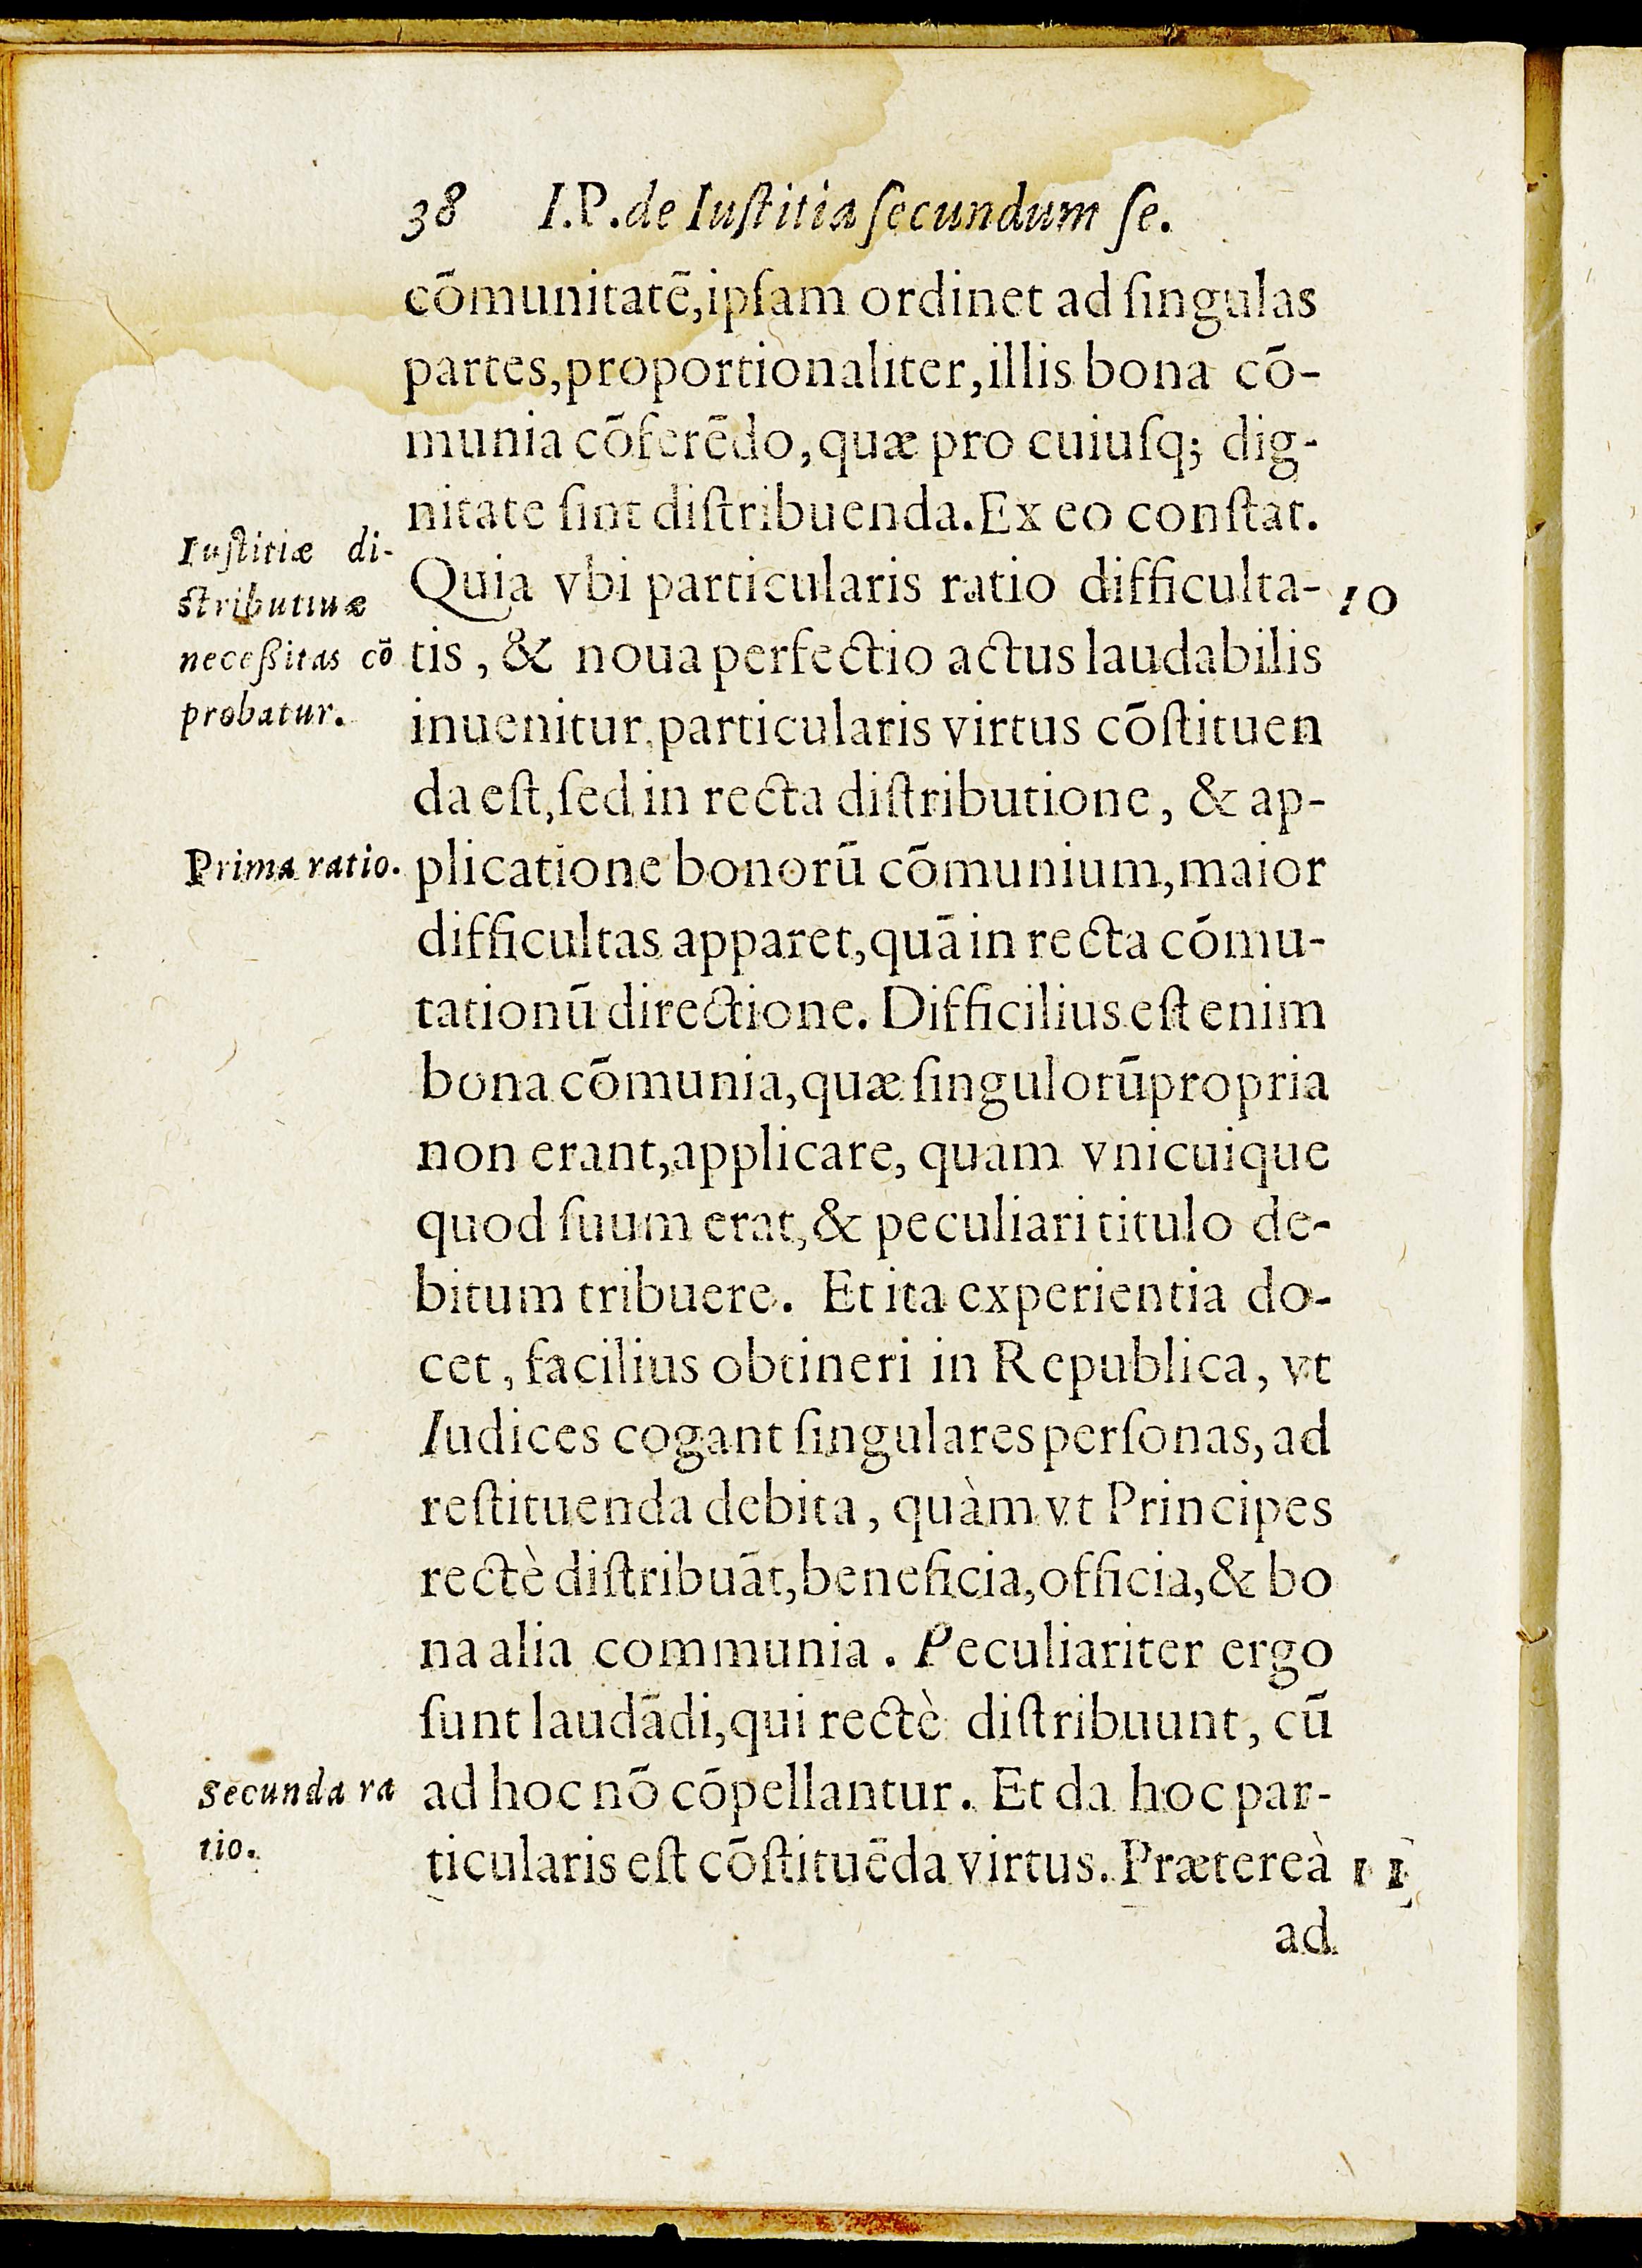 38 I.P. de Iuſtitia ſecundum ſe.
cōmunitatē,ipſam ordinet ad ſingulas
partes,proportionaliter,illis bona cō-
munia cōferēdo,quæ pro cuiuſq; dig-
nitate ſint diſtribuenda.Ex eo conſtat.
Iuſtitiæ di-
ſtributiuæ
neceſsitas cō
probatur.
Quia vbi particularis ratio difficulta- 10
tis, & noua perfectio actus laudabilis
inuenitur,particularis virtus cōſtituen
da eſt,ſed in recta diſtributione, & ap-
Prima ratio.
plicatione bonorū cōmunium,maior
difficultas apparet,quā in recta cōmu-
tationū directione. Difficilius eſt enim
bona cōmunia,quæ ſingulorū propria
non erant,applicare, quàm vnicuique
quod ſuum erat,& peculiari titulo de-
bitum tribuere. Et ita experientia do-
cet, facilius obtineri in Republica, vt
Iudices cogant ſingulares perſonas, ad
reſtituenda debita, quàm vt Principes
rectè diſtribuāt,beneficia,officia,& bo
na alia communia. Peculiariter ergo
ſunt laudādi,qui rectè diſtribuunt, cū
Secunda ra
tio.
ad hoc nō cōpellantur. Et da hoc par-
ticularis eſt cōſtituēda virtus. Prætereà 11
ad